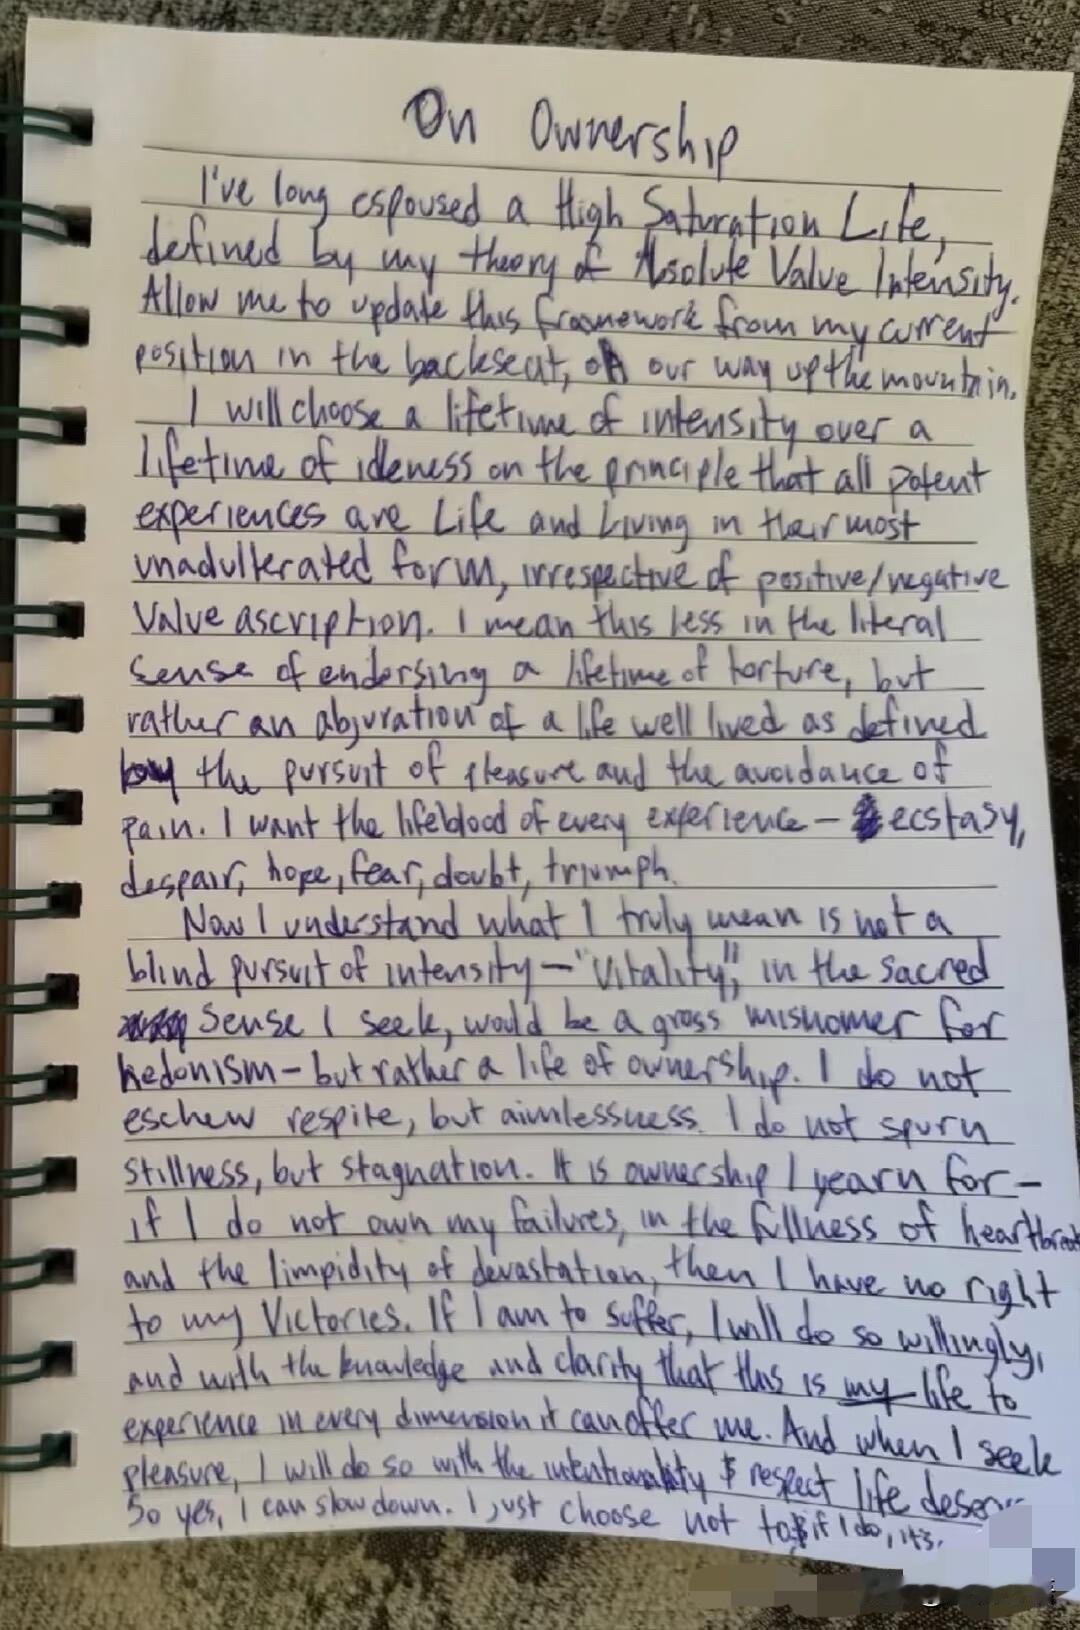 On Ownership
I've long espoused a High Saturation Life,
defined by my theory of Absolute Value Intensity.
Allow me to update this framework from my current
position in the backseat, on our way up the mountain.
I will choose a lifetime of intensity over a
lifetime of idleness on the principle that all potent
experiences are Life and Living in their most
unadulterated form, irrespective of positive/negative
Value ascription. I mean this less in the literal
sense of endorsing a lifetime of torture, but
rather an abjuration of a life well lived as defined
by the pursuit of pleasure and the avoidance of
pain. I want the lifeblood of every experience – ecstasy,
despair, hope, fear, doubt, triumph.
Now I understand what I truly mean is not a
blind pursuit of intensity – "Vitality", in the sacred
sense I seek, would be a gross misnomer for
hedonism – but rather a life of ownership. I do not
eschew respite, but aimlessness. I do not spurn
stillness, but stagnation. It is ownership I yearn for –
if I do not own my failures, in the fullness of heartbreak
and the limpidity of devastation, then I have no right
to my Victories. If I am to suffer, I will do so willingly,
and with the knowledge and clarity that this is my life to
experience in every dimension it can offer me. And when I seek
pleasure, I will do so with the intentionality & respect life
So yes, I can slow down. I just choose not to & if I do, it's